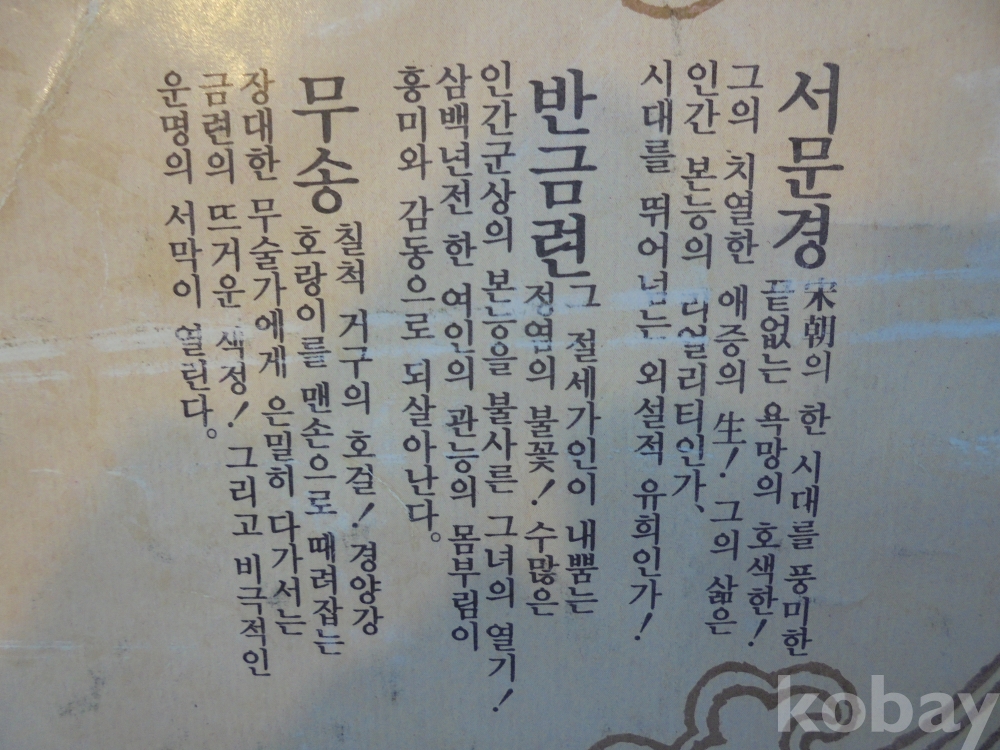 서문경
宋朝의 한 시대를 풍미한
끝없는 욕망의 호색한!
그의 치열한 애증의 生! 그의 삶은
인간 본능의 리얼리티인가,
시대를 뛰어넘는 외설적 유희인가!
반금련
그 절세가인이 내뿜는
정염의 불꽃! 수많은
인간군상의 본능을 불사른 그녀의 열기!
삼백년전 한 여인의 관능의 몸부림이
흥미와 감동으로 되살아난다。
무송
칠척 거구의 호걸! 경양강
호랑이를 맨손으로 때려잡는
장대한 무술가에게 은밀히 다가서는
금련의 뜨거운 색정! 그리고 비극적인
운명의 서막이 열린다。
kobay